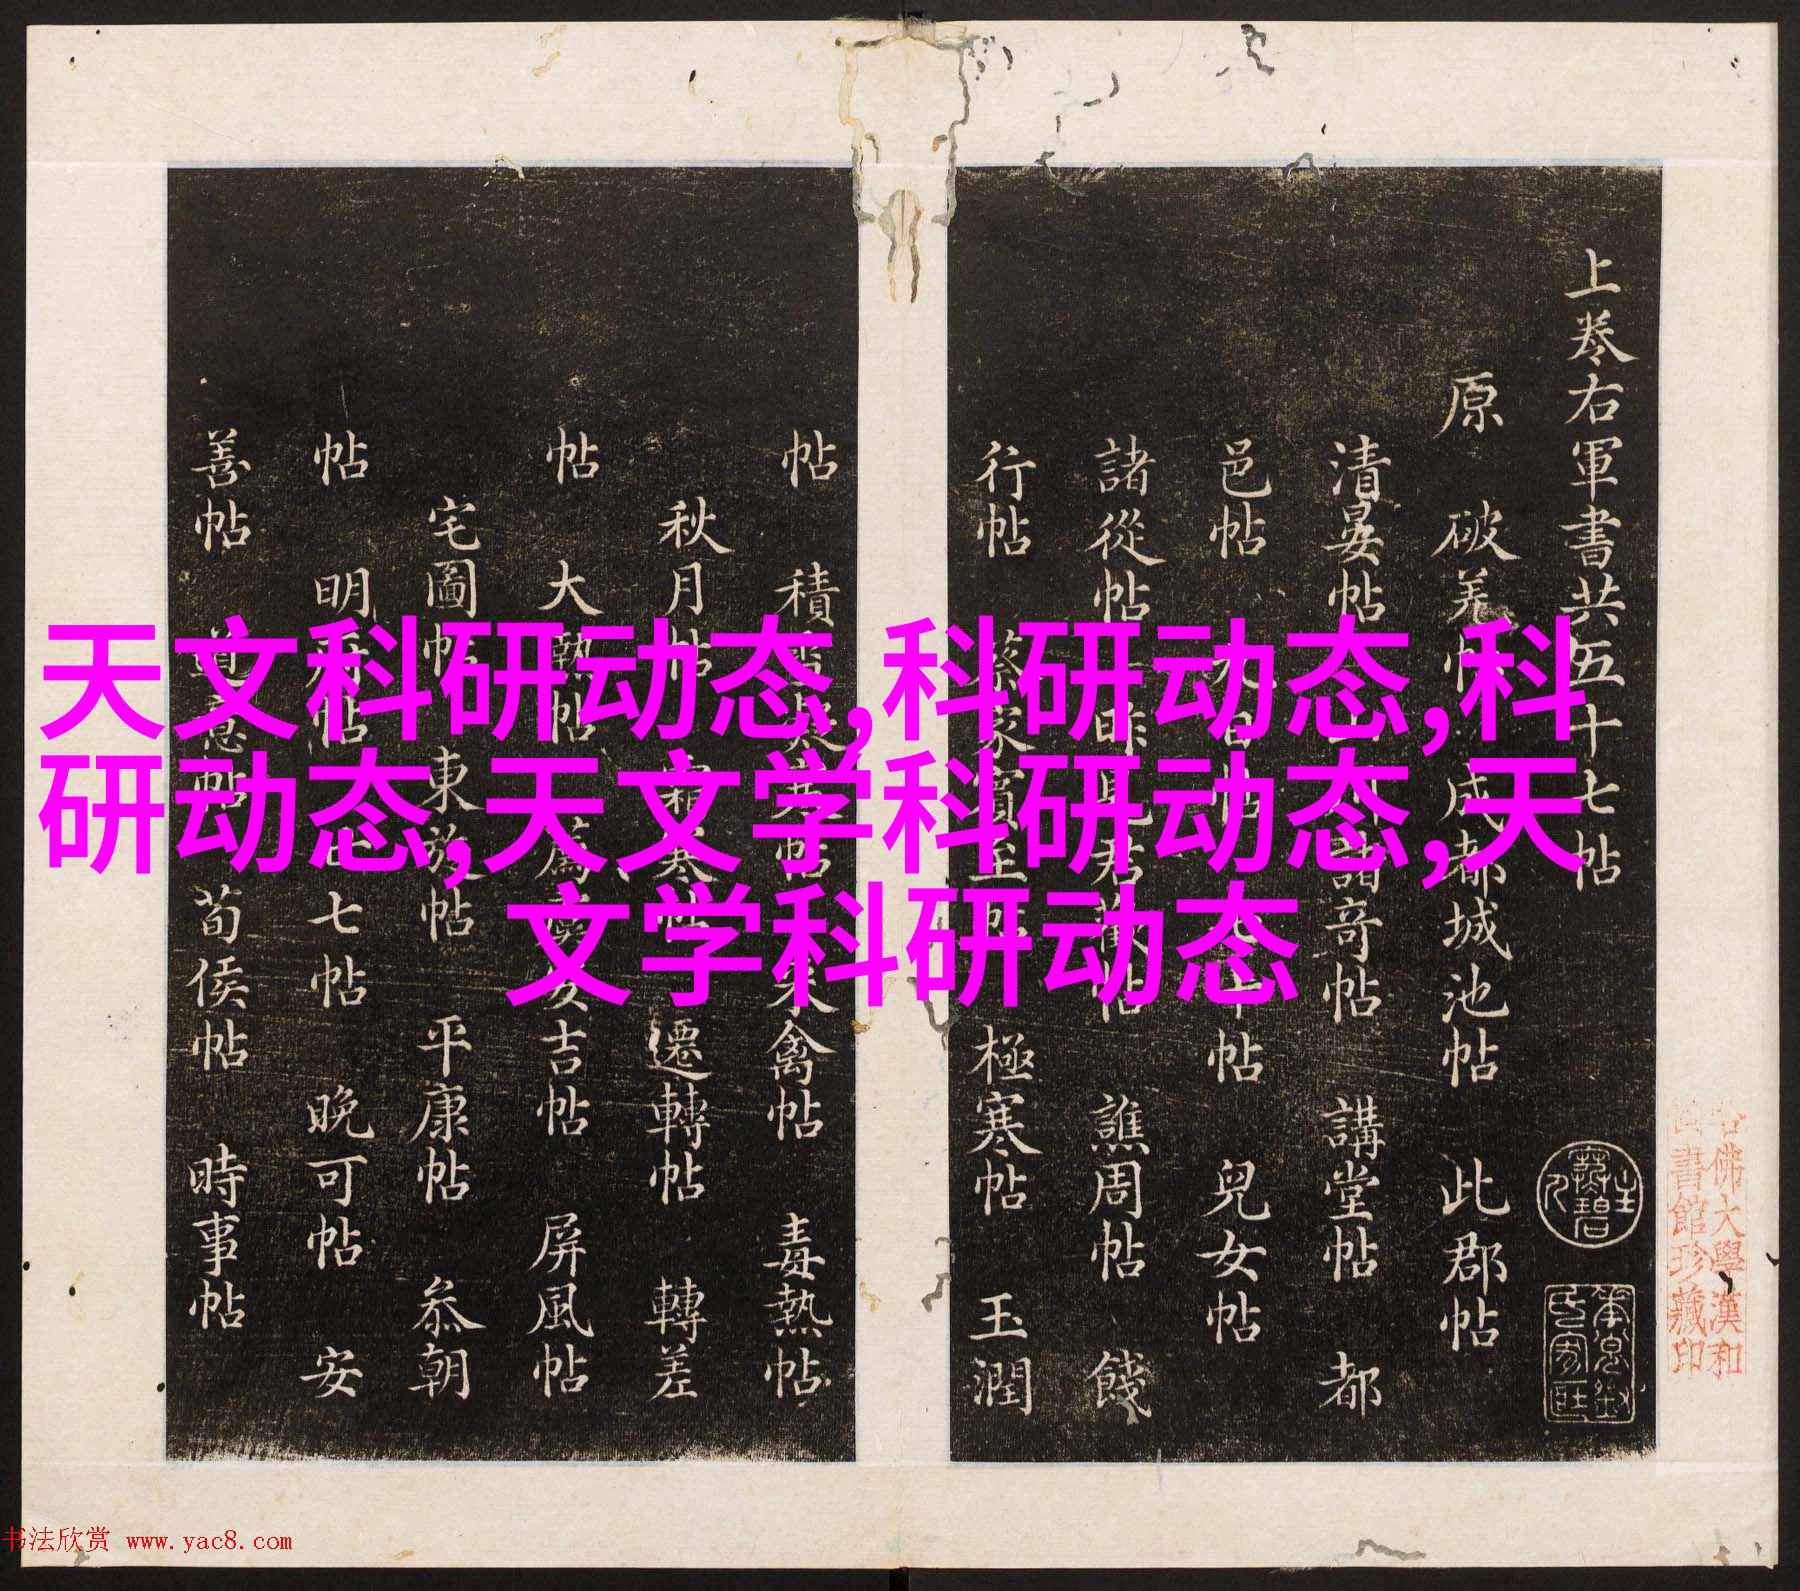 天文科研动态,科研动态,科
研动态,天文学科研动态,天
文学科研动态
上卷右軍書共五十七帖
原 破羌帖 成都城池帖 此郡帖
清晏帖 山川諸奇帖 講堂帖 都
邑帖 七十帖 兒女帖
諸從帖 譙周帖 餞
行帖 蔡家賓至帖 極寒帖 玉潤
帖 積雪 來禽帖 毒熱帖
秋月帖 霜寒帖 遷轉帖 轉差
帖 大熱帖 安吉帖 屏風帖
宅圖帖 東旋帖 平康帖 叅朝
帖 明 七帖 晚可帖 安
善帖 帖 荀侯帖 時事帖
佛大學漢和
圖書館珍藏印
书法欣赏 www.yac8.com